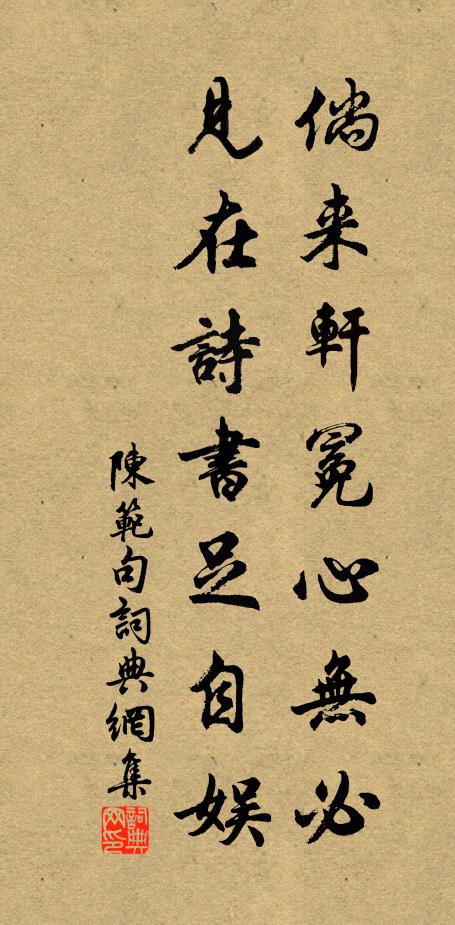 倘来軒冕心無必
見在詩書足自娱
陳範句詞典網集
詞典
网印